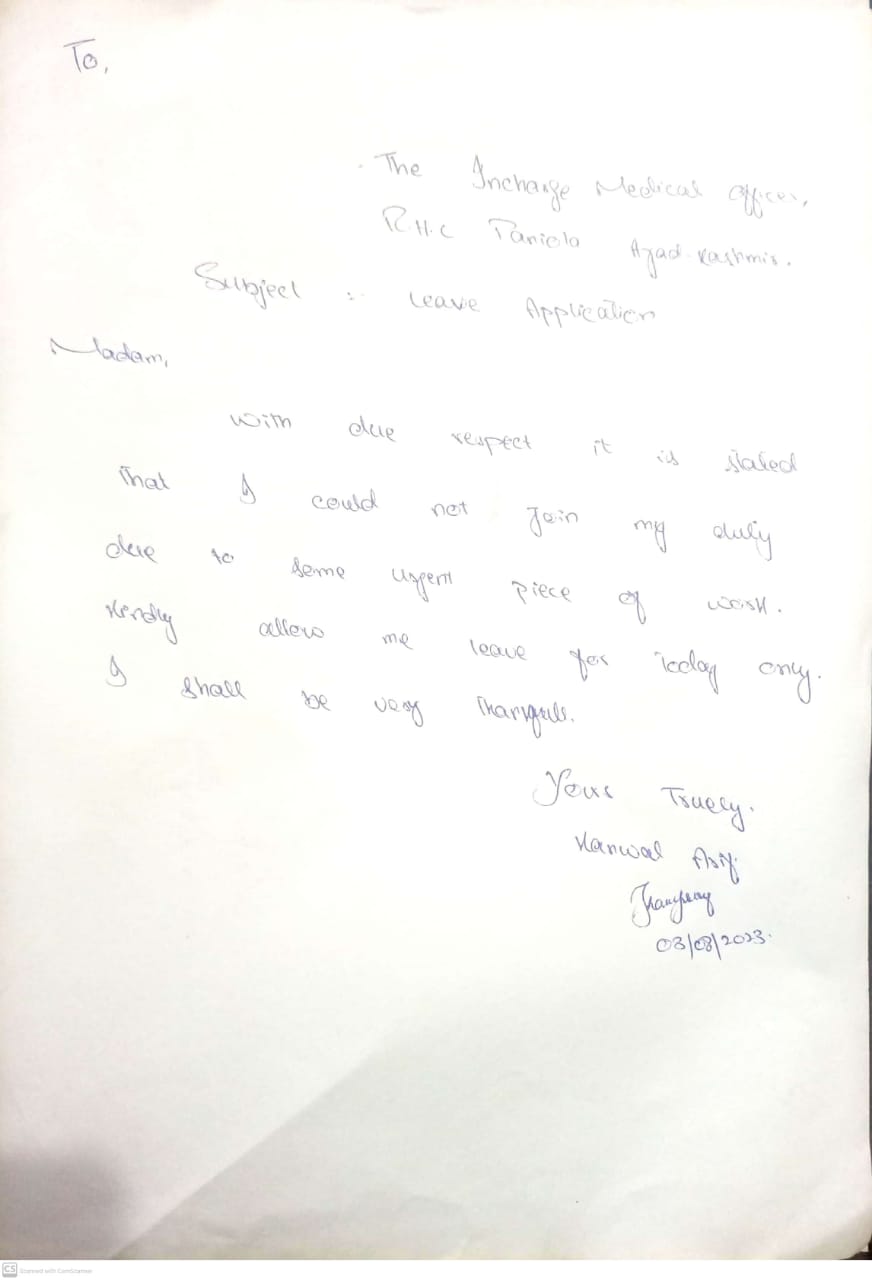 To,
The Incharge Medical Officer,
R.H.C Paniola Azad Kashmir.
Subject :- Leave Application
Madam,
With due respect it is stated
that I could not join my duty
due to some urgent piece of work.
Kindly allow me leave for today only.
I shall be very thankfull.
Yours Truely.
Kanwal Asif
03/08/2023.
CS Scanned with CamScanner